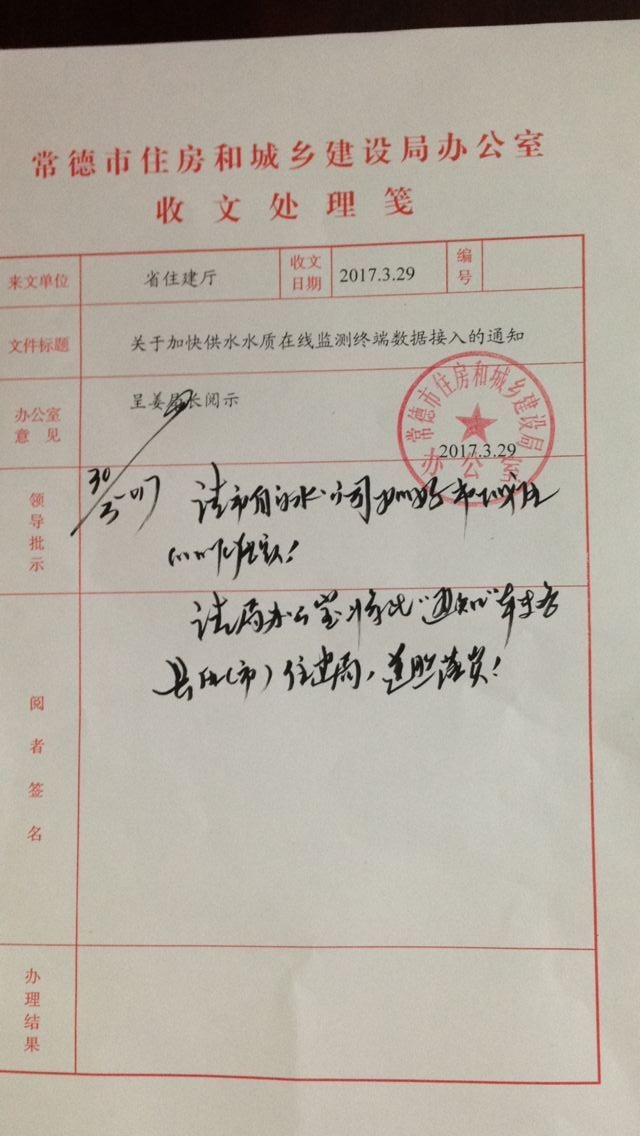 常德市住房和城乡建设局办公室
收文处理笺
来文单位 省住建厅 收文日期 2017.3.29 编号
文件标题 关于加快供水水质在线监测终端数据接入的通知
办公室意见 呈姜局长阅示
常德市住房和城乡建设局
办公室
2017.3.29
领导批示
30/3-017
请市自来水公司
请局办公室将此“通知”转发各
县区(市)住建局,遵照落实!
阅者签名
办理结果